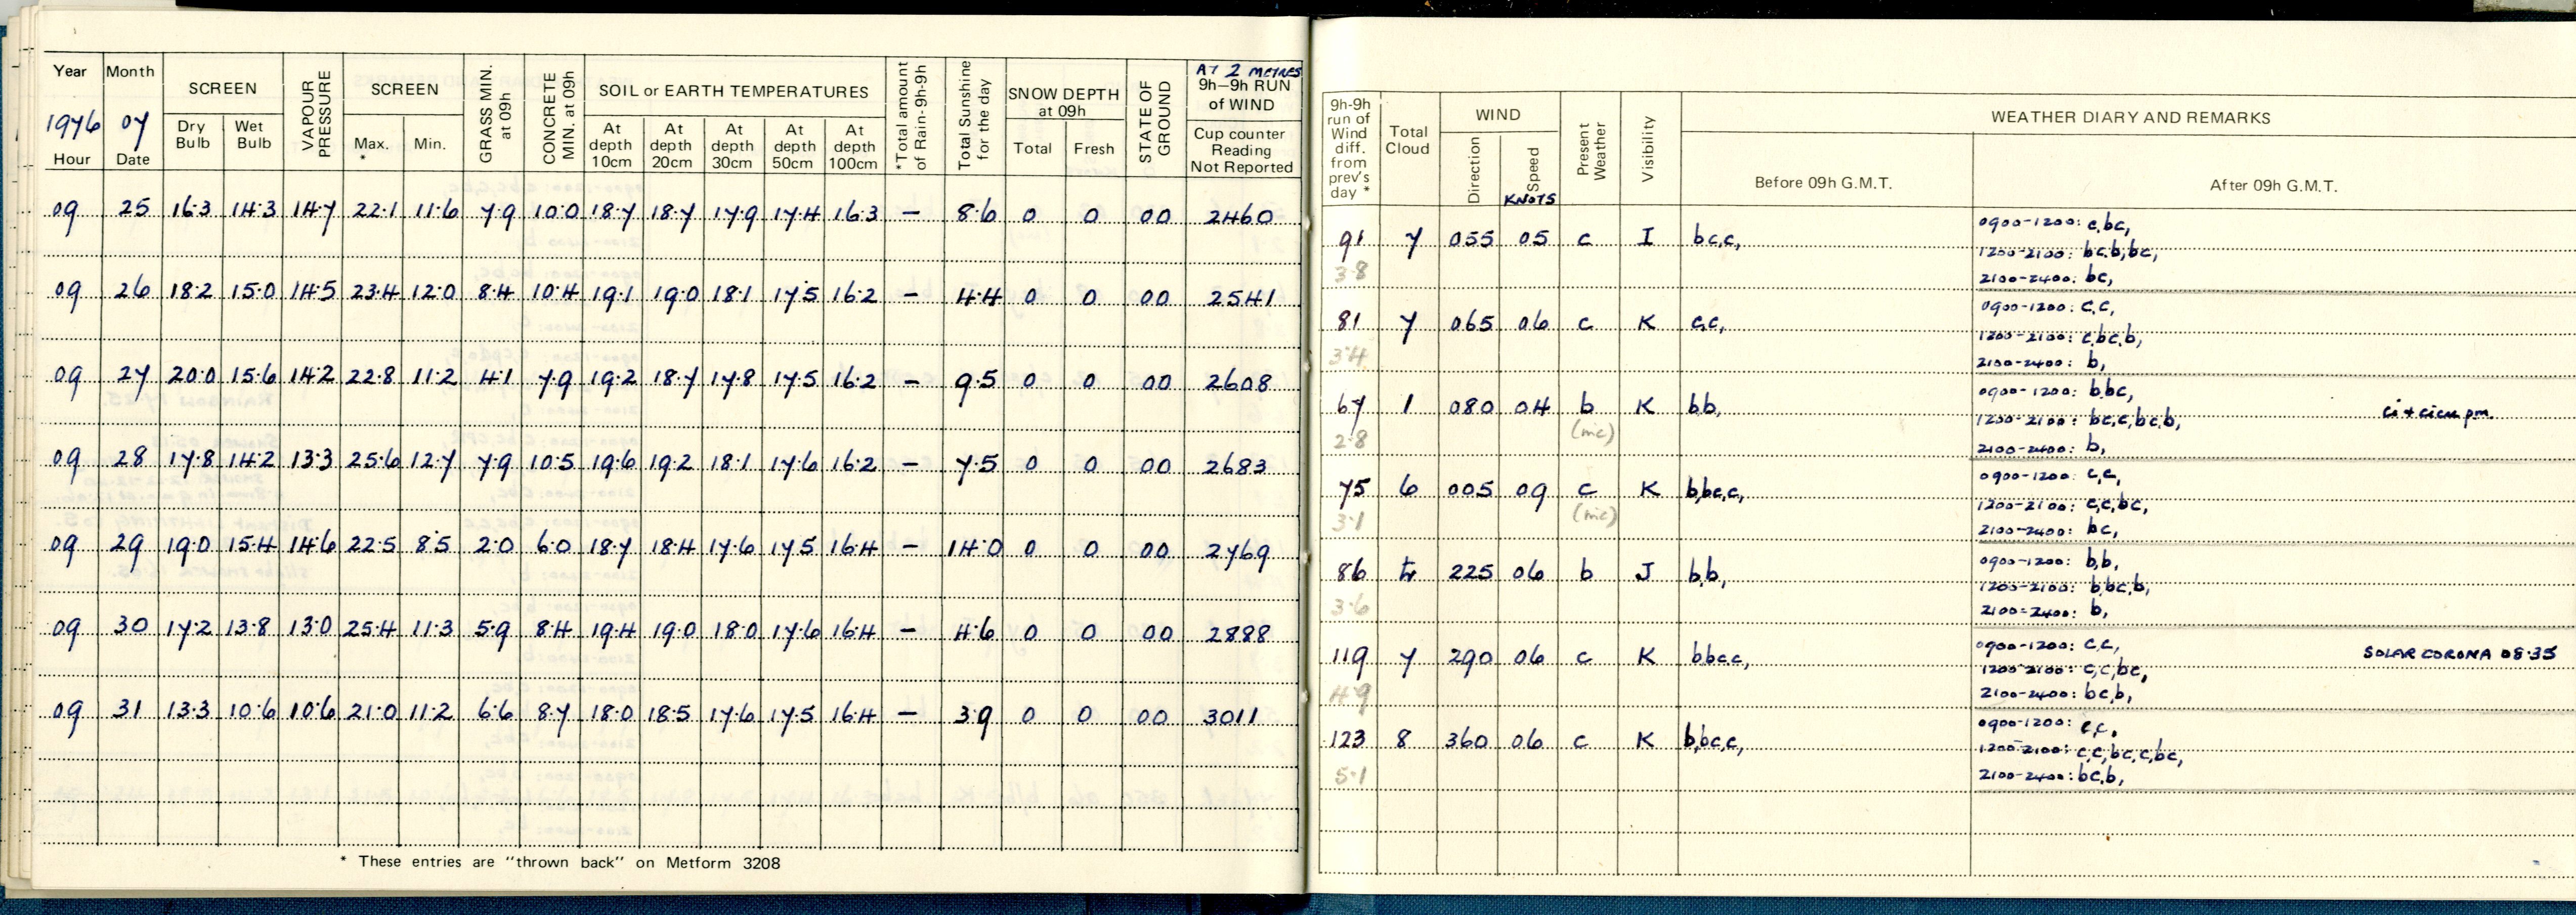 Year Month SCREEN VAPOUR PRESSURE SCREEN GRASS MIN. at 09h CONCRETE MIN. at 09h SOIL or EARTH TEMPERATURES *Total amount of Rain-9h-9h Total Sunshine for the day SNOW DEPTH at 09h STATE OF GROUND AT 2 METRES 9h–9h RUN of WIND
1976 07 Dry Bulb Wet Bulb Max. * Min. At depth 10cm At depth 20cm At depth 30cm At depth 50cm At depth 100cm Total Fresh Cup counter Reading Not Reported
Hour Date
09 25 16.3 14.3 14.7 22.1 11.6 7.9 10.0 18.7 18.7 17.9 17.4 16.3 – 8.6 0 0 00 2460
09 26 18.2 15.0 14.5 23.4 12.0 8.4 10.4 19.1 19.0 18.1 17.5 16.2 – 4.4 0 0 00 2541
09 27 20.0 15.6 14.2 22.8 11.2 4.1 7.9 19.2 18.7 17.8 17.5 16.2 – 9.5 0 0 00 2608
09 28 17.8 14.2 13.3 25.6 12.7 7.9 10.5 19.6 19.2 18.1 17.6 16.2 – 7.5 0 0 00 2683
09 29 19.0 15.4 14.6 22.5 8.5 2.0 6.0 18.7 18.4 17.6 17.5 16.4 – 14.0 0 0 00 2769
09 30 17.2 13.8 13.0 25.4 11.3 5.9 8.4 19.4 19.0 18.0 17.6 16.4 – 4.6 0 0 00 2888
09 31 13.3 10.6 10.6 21.0 11.2 6.6 8.7 18.0 18.5 17.6 17.5 16.4 – 3.9 0 0 00 3011
* These entries are "thrown back" on Metform 3208
9h-9h run of Wind diff. from prev's day * Total Cloud WIND Direction Speed KNOTS Present Weather Visibility WEATHER DIARY AND REMARKS
Before 09h G.M.T. After 09h G.M.T.
0900-1200: c,bc,
91 7 055 05 c I bc,c, 1200-2100: bc,b,bc,
3.8 2100-2400: bc,
0900-1200: c,c,
81 7 065 06 c K c,c, 1200-2100: c,bc,b,
3.4 2100-2400: b,
0900-1200: b,bc,
67 1 080 04 b K b,b, 1200-2100: bc,c,bc,b, ci + cicu pm.
(mc)
2.8 2100-2400: b,
0900-1200: c,c,
75 6 005 09 c K b,bc,c, 1200-2100: c,c,bc,
(mc)
3.1 2100-2400: bc,
0900-1200: b,b,
86 tr 225 06 b J b,b, 1200-2100: b,bc,b,
3.6 2100-2400: b,
0900-1200: c,c, SOLAR CORONA 08.35
119 7 290 06 c K b,bc,c, 1200-2100: c,c,bc,
4.9 2100-2400: bc,b,
0900-1200: c,c,
123 8 360 06 c K b,bc,c, 1200-2100: c,c,bc,c,bc,
5.1 2100-2400: bc,b,